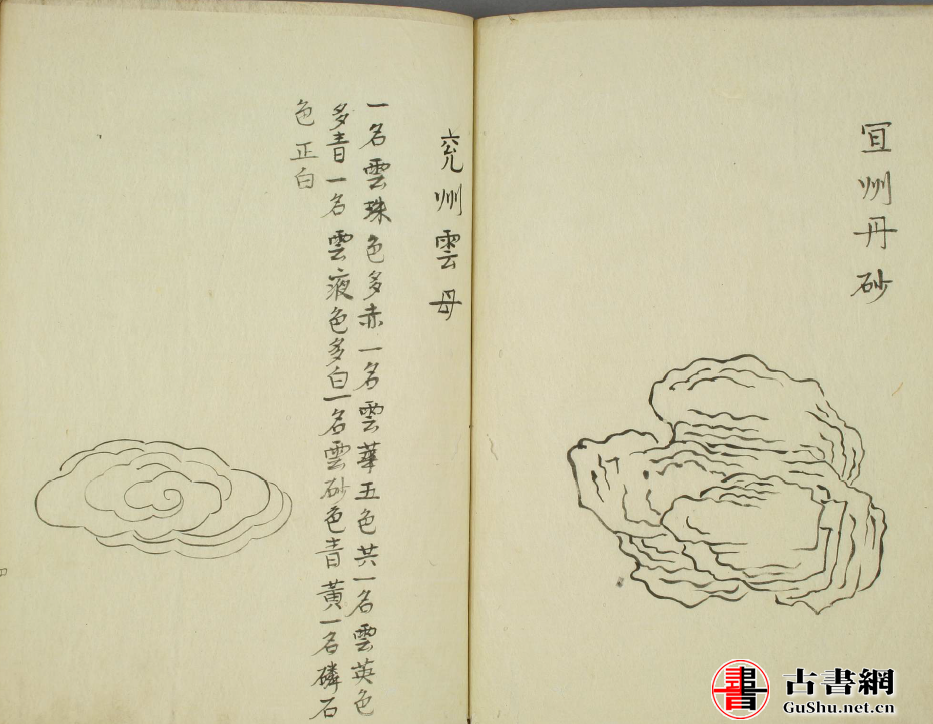 宜州丹砂
兖州雲母
一名雲珠色多赤一名雲華五色共一名雲英色
多青一名雲液色多白一名雲砂色青黄一名磷石
色正白
書
古書網
GuShu.net.cn